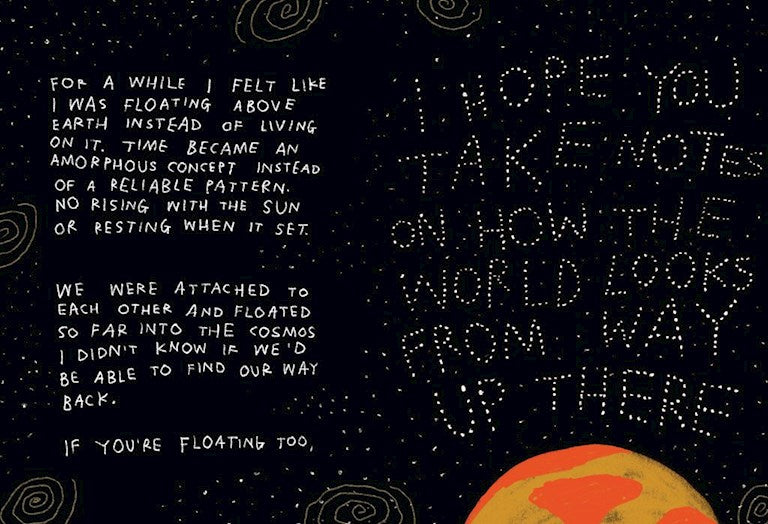 FOR A WHILE I FELT LIKE
I WAS FLOATING ABOVE
EARTH INSTEAD OF LIVING
ON IT. TIME BECAME AN
AMORPHOUS CONCEPT INSTEAD
OF A RELIABLE PATTERN.
NO RISING WITH THE SUN
OR RESTING WHEN IT SET.
WE WERE ATTACHED TO
EACH OTHER AND FLOATED
SO FAR INTO THE COSMOS
I DIDN'T KNOW IF WE'D
BE ABLE TO FIND OUR WAY
BACK.
IF YOU'RE FLOATING TOO,
I HOPE YOU
TAKE NOTES
ON HOW THE
WORLD LOOKS
FROM WAY
UP THERE